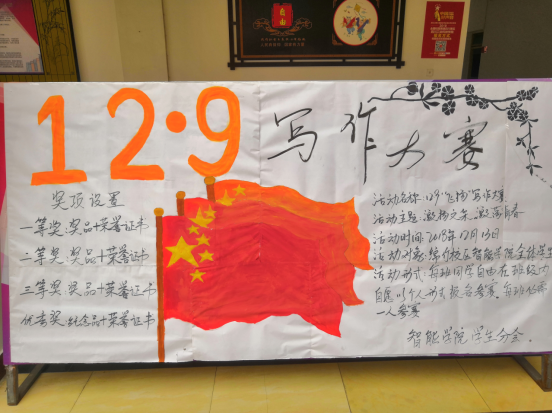 12·9 写作大赛
奖项设置
一等奖:奖品+荣誉证书
二等奖:奖品+荣誉证书
三等奖:奖品+荣誉证书
优秀奖:纪念品+荣誉证书
活动名称:12·9"飞扬"写作大赛
活动主题:激扬文字,激荡青春
活动时间:2018年12月13日
活动对象:校区智能学院全体学生
活动形式:每班同学自由在班级内
自愿以个人形式报名参赛,每班
一人参赛
智能学院学生分会.